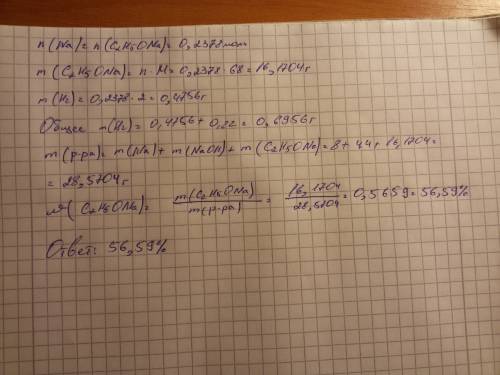 n(Na) = n(C2H5ONa) = 0,2378 моль
m(C2H5ONa) = n·M = 0,2378·68 = 16,1704 г
m(H2) = 0,2378·2 = 0,4756 г
Общее m(H2) = 0,4756 + 0,22 = 0,6956 г
m(р-ра) = m(Na) + m(NaOH) + m(C2H5ONa) = 8 + 4,4 + 16,1704 =
= 28,5704 г
(C2H5ONa) = m(C2H5ONa) / m(р-ра) = 16,1704 / 28,5704 = 0,5659 = 56,59%
Ответ: 56,59%